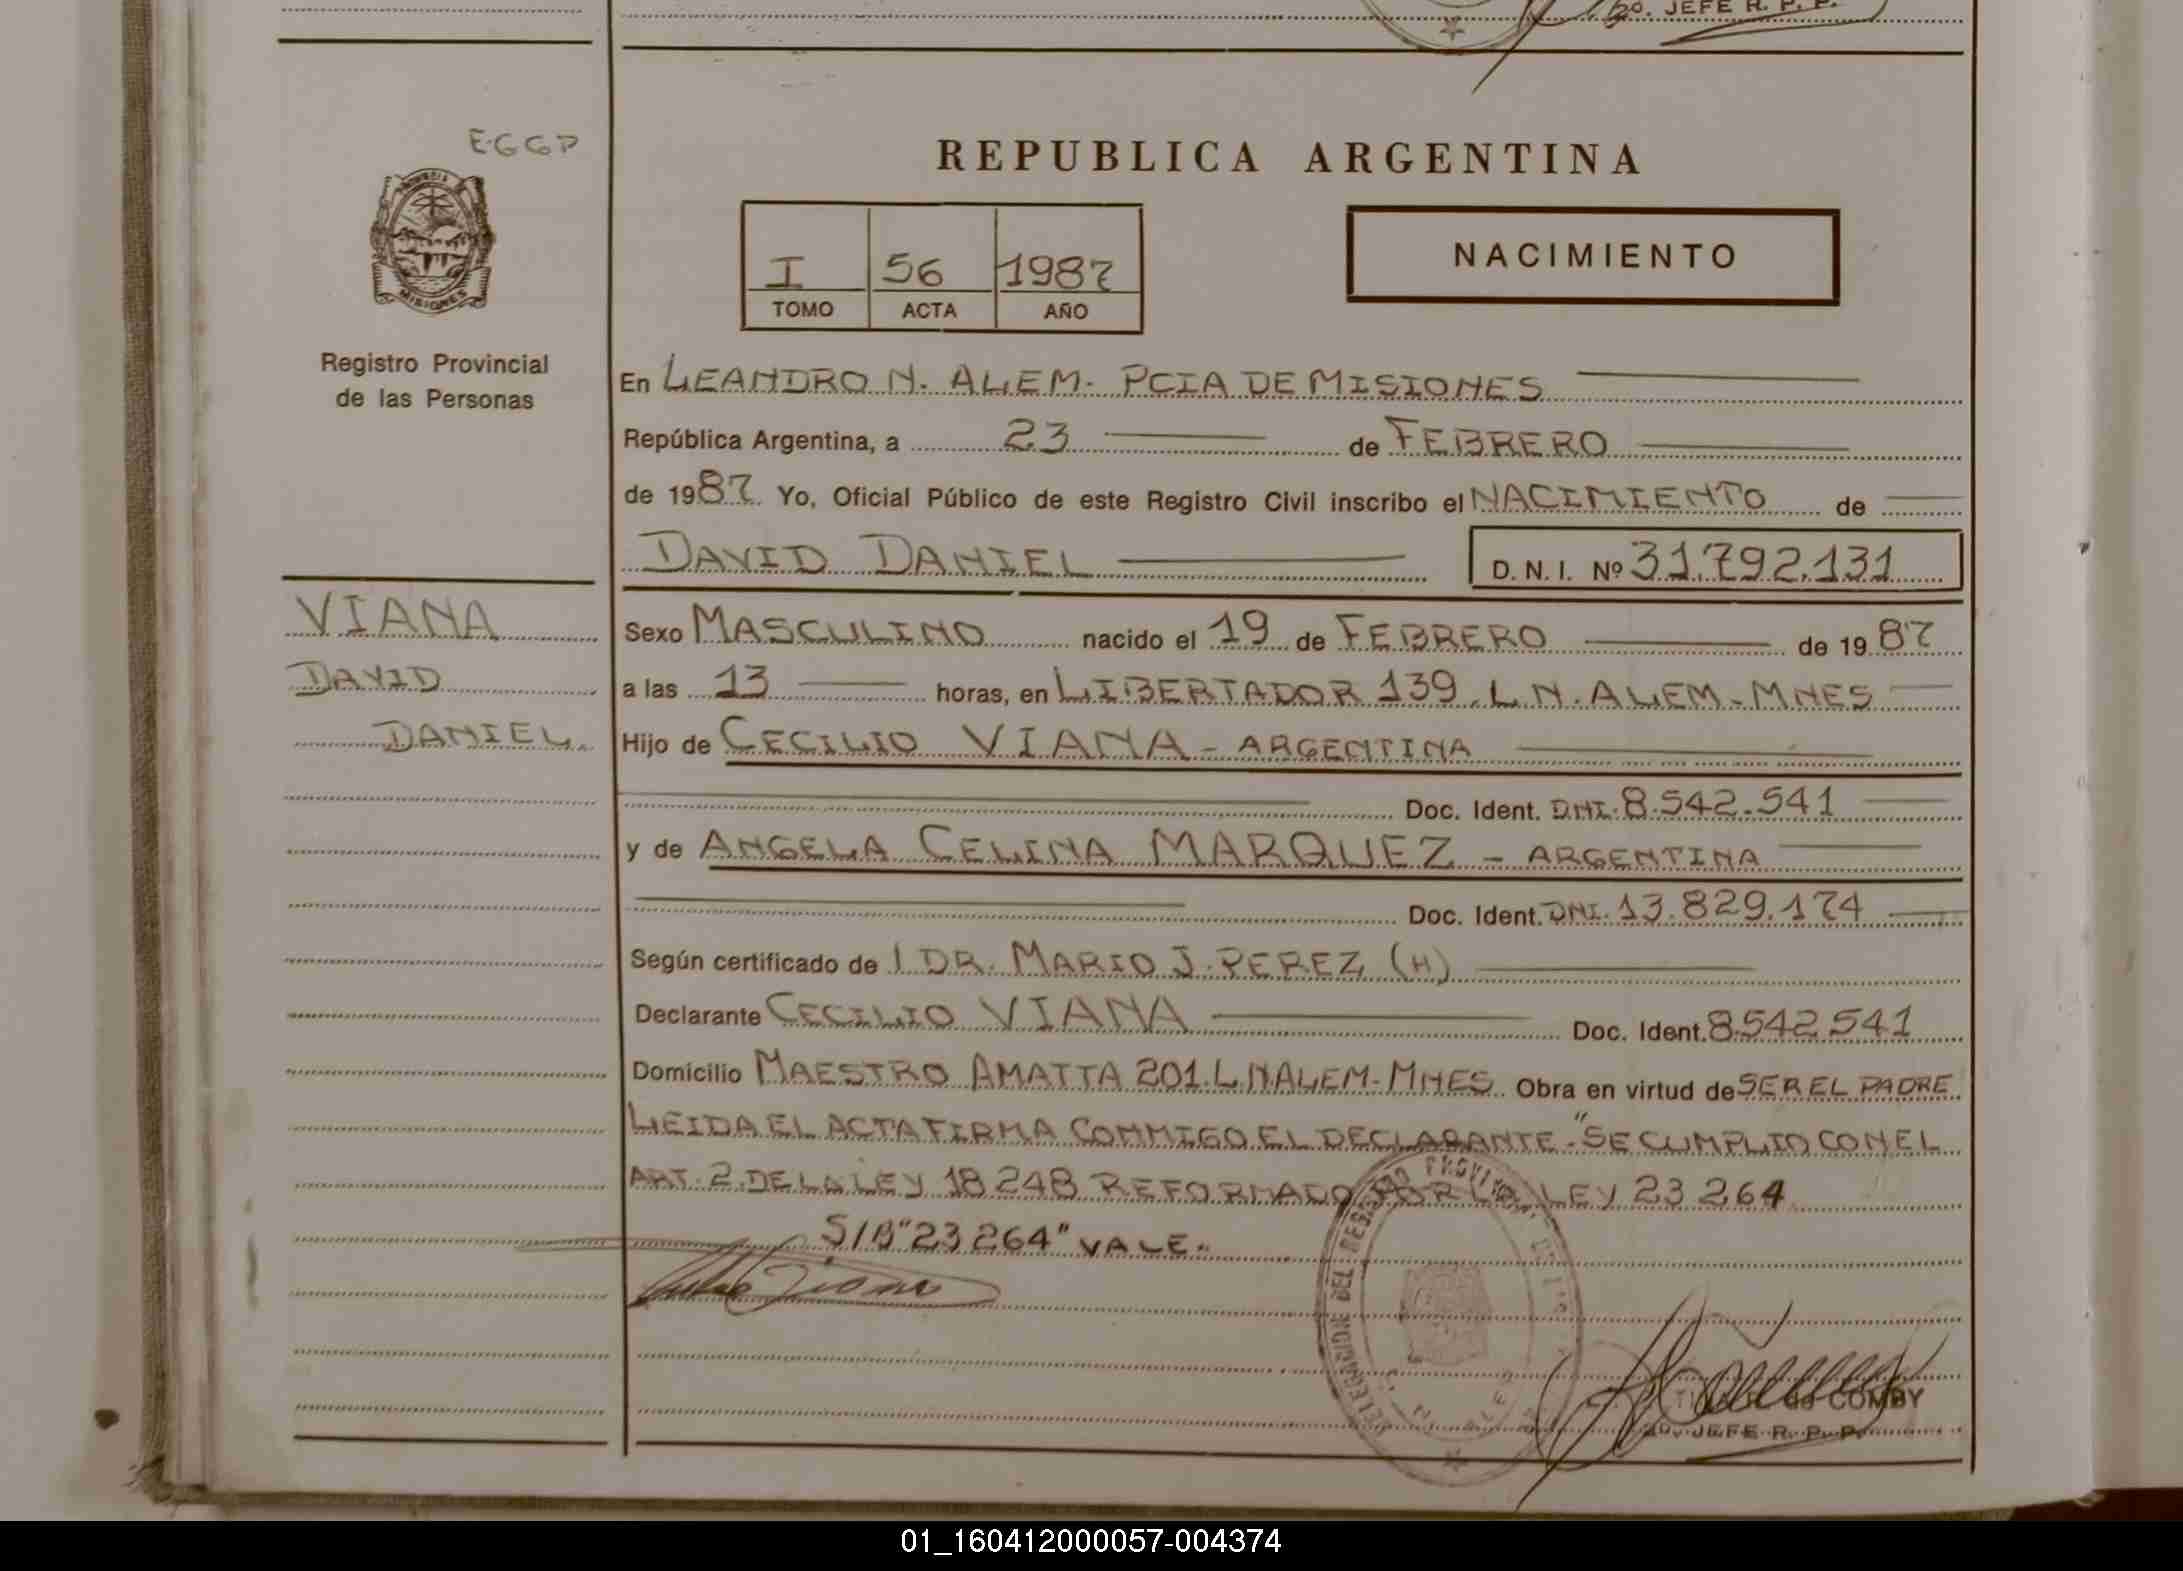 2º. JEFE R. P. P.
EGGP
PROVINCIA
MISIONES
Registro Provincial
de las Personas
REPUBLICA ARGENTINA
I 56 1987
TOMO ACTA AÑO
NACIMIENTO
En LEANDRO N. ALEM. PCIA DE MISIONES
República Argentina, a 23 de FEBRERO
de 1987. Yo, Oficial Público de este Registro Civil inscribo el NACIMIENTO de
DAVID DANIEL D. N. I. Nº 31.792.131
VIANA
DAVID
DANIEL.
Sexo MASCULINO nacido el 19 de FEBRERO de 1987
a las 13 horas, en LIBERTADOR 139. L.N. ALEM-MNES
Hijo de CECILIO VIANA - ARGENTINA
Doc. Ident. DNI. 8.542.541
y de ANGELA CELINA MARQUEZ - ARGENTINA
Doc. Ident. DNI. 13.829.174
Según certificado de l DR. MARIO J. PEREZ (H)
Declarante CECILIO VIANA Doc. Ident. 8.542.541
Domicilio MAESTRO AMATTA 201. L.N ALEM-MNES. Obra en virtud de SER EL PADRE
LEIDA EL ACTA FIRMA CONMIGO EL DECLARANTE-"SE CUMPLIO CON EL
ART. 2. DE LA LEY 18248 REFORMADO POR LA LEY 23264
S/B "23264" VALE.
DELEGACION DEL REGISTRO
de COMBY
2º. JEFE R. P. P.
01_160412000057-004374